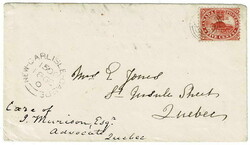 NEW-CARLISLE
Mrs E Jones
St Ursule Street
Quebec
Care of
J. Murison, Esqr
Advocate
Quebec